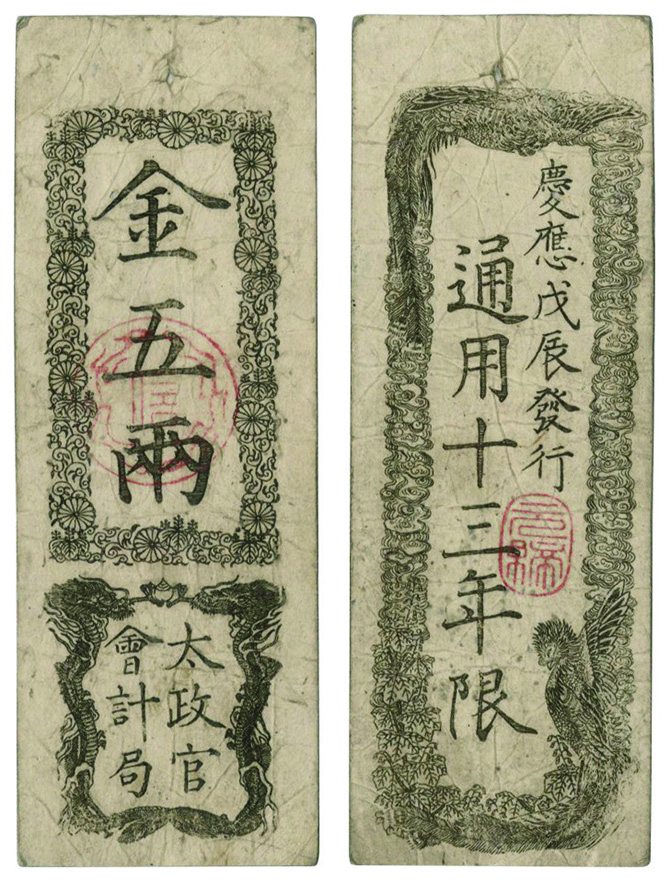 金五兩
太政官
會計局
慶應戊辰發行
通用十三年限